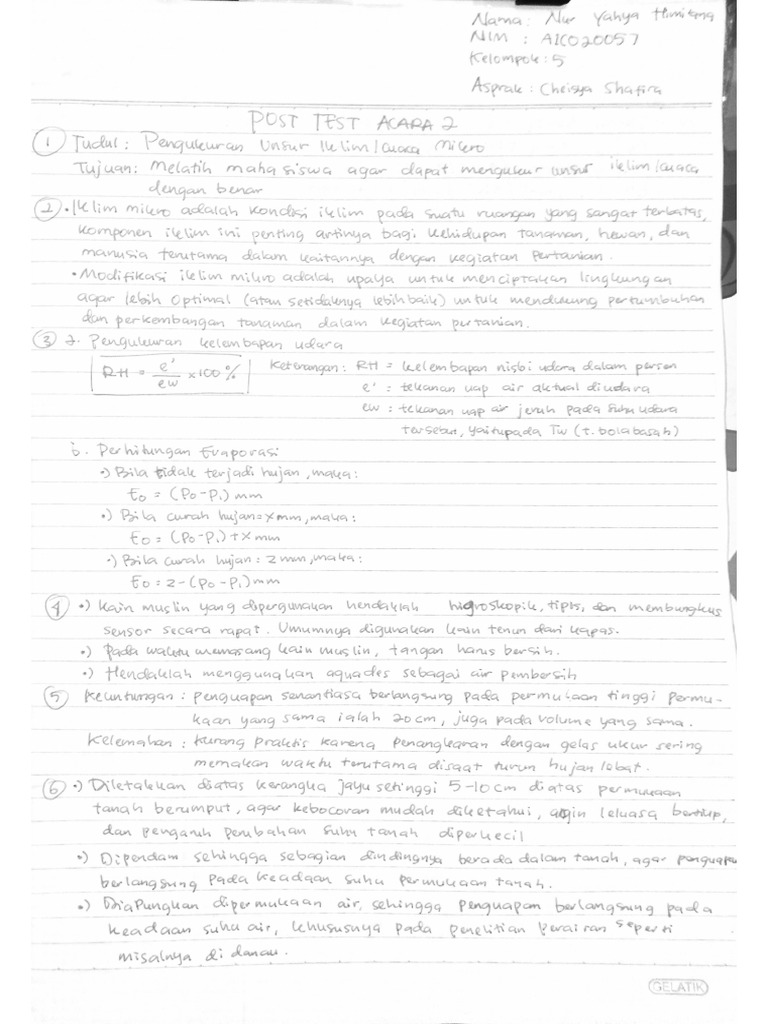 Nama: Nur Yahya Himitang
NIM : A1C020057
Kelompok : 5
Asprak : Cheisya Shafira
POST TEST ACARA 2
1 Judul : Pengukuran Unsur Iklim/Cuaca Mikro
Tujuan: Melatih mahasiswa agar dapat mengukur unsur iklim/cuaca
dengan benar
2 • Iklim mikro adalah kondisi iklim pada suatu ruangan yang sangat terbatas,
komponen iklim ini penting artinya bagi kehidupan tanaman, hewan, dan
manusia terutama dalam kaitannya dengan kegiatan pertanian.
• Modifikasi iklim mikro adalah upaya untuk menciptakan lingkungan
agar lebih optimal (atau setidaknya lebih baik) untuk mendukung pertumbuhan
dan perkembangan tanaman dalam kegiatan pertanian.
3 a. Pengukuran kelembapan udara
RH = e'/ew × 100 % Keterangan : RH = kelembapan nisbi udara dalam persen
e' : tekanan uap air aktual diudara
ew : tekanan uap air jenuh pada suhu udara
tersebut, yaitu pada Tw (t. bola basah)
b. Perhitungan Evaporasi
•) Bila tidak terjadi hujan, maka:
Eo = (Po-P1) mm
•) Bila curah hujan = x mm, maka :
Eo = (Po-P1) + x mm
•) Bila curah hujan = 2 mm, maka :
Eo = 2 - (Po-P1) mm
4 •) Kain muslin yang dipergunakan hendaklah higroskopik, tipis, dan membungkus
sensor secara rapat. Umumnya digunakan kain tenun dari kapas.
•) Pada waktu memasang kain muslin, tangan harus bersih.
•) Hendaklah menggunakan aquades sebagai air pembersih
5 Keuntungan : penguapan senantiasa berlangsung pada permukaan tinggi permu-
kaan yang sama ialah 20 cm, juga pada volume yang sama.
Kelemahan : Kurang praktis karena penangkaran dengan gelas ukur sering
memakan waktu terutama disaat turun hujan lebat.
6 •) Diletakkan diatas kerangka jayu setinggi 5-10 cm diatas permukaan
tanah berumput, agar kebocoran mudah diketahui, angin leluasa bertiup,
dan pengaruh perubahan suhu tanah diperkecil
•) Dipendam sehingga sebagian dindingnya berada dalam tanah, agar penguapan
berlangsung pada keadaan suhu permukaan tanah.
•) Diapungkan dipermukaan air, sehingga penguapan berlangsung pada
keadaan suhu air, khususnya pada penelitian perairan seperti
misalnya di danau.
GELATIK